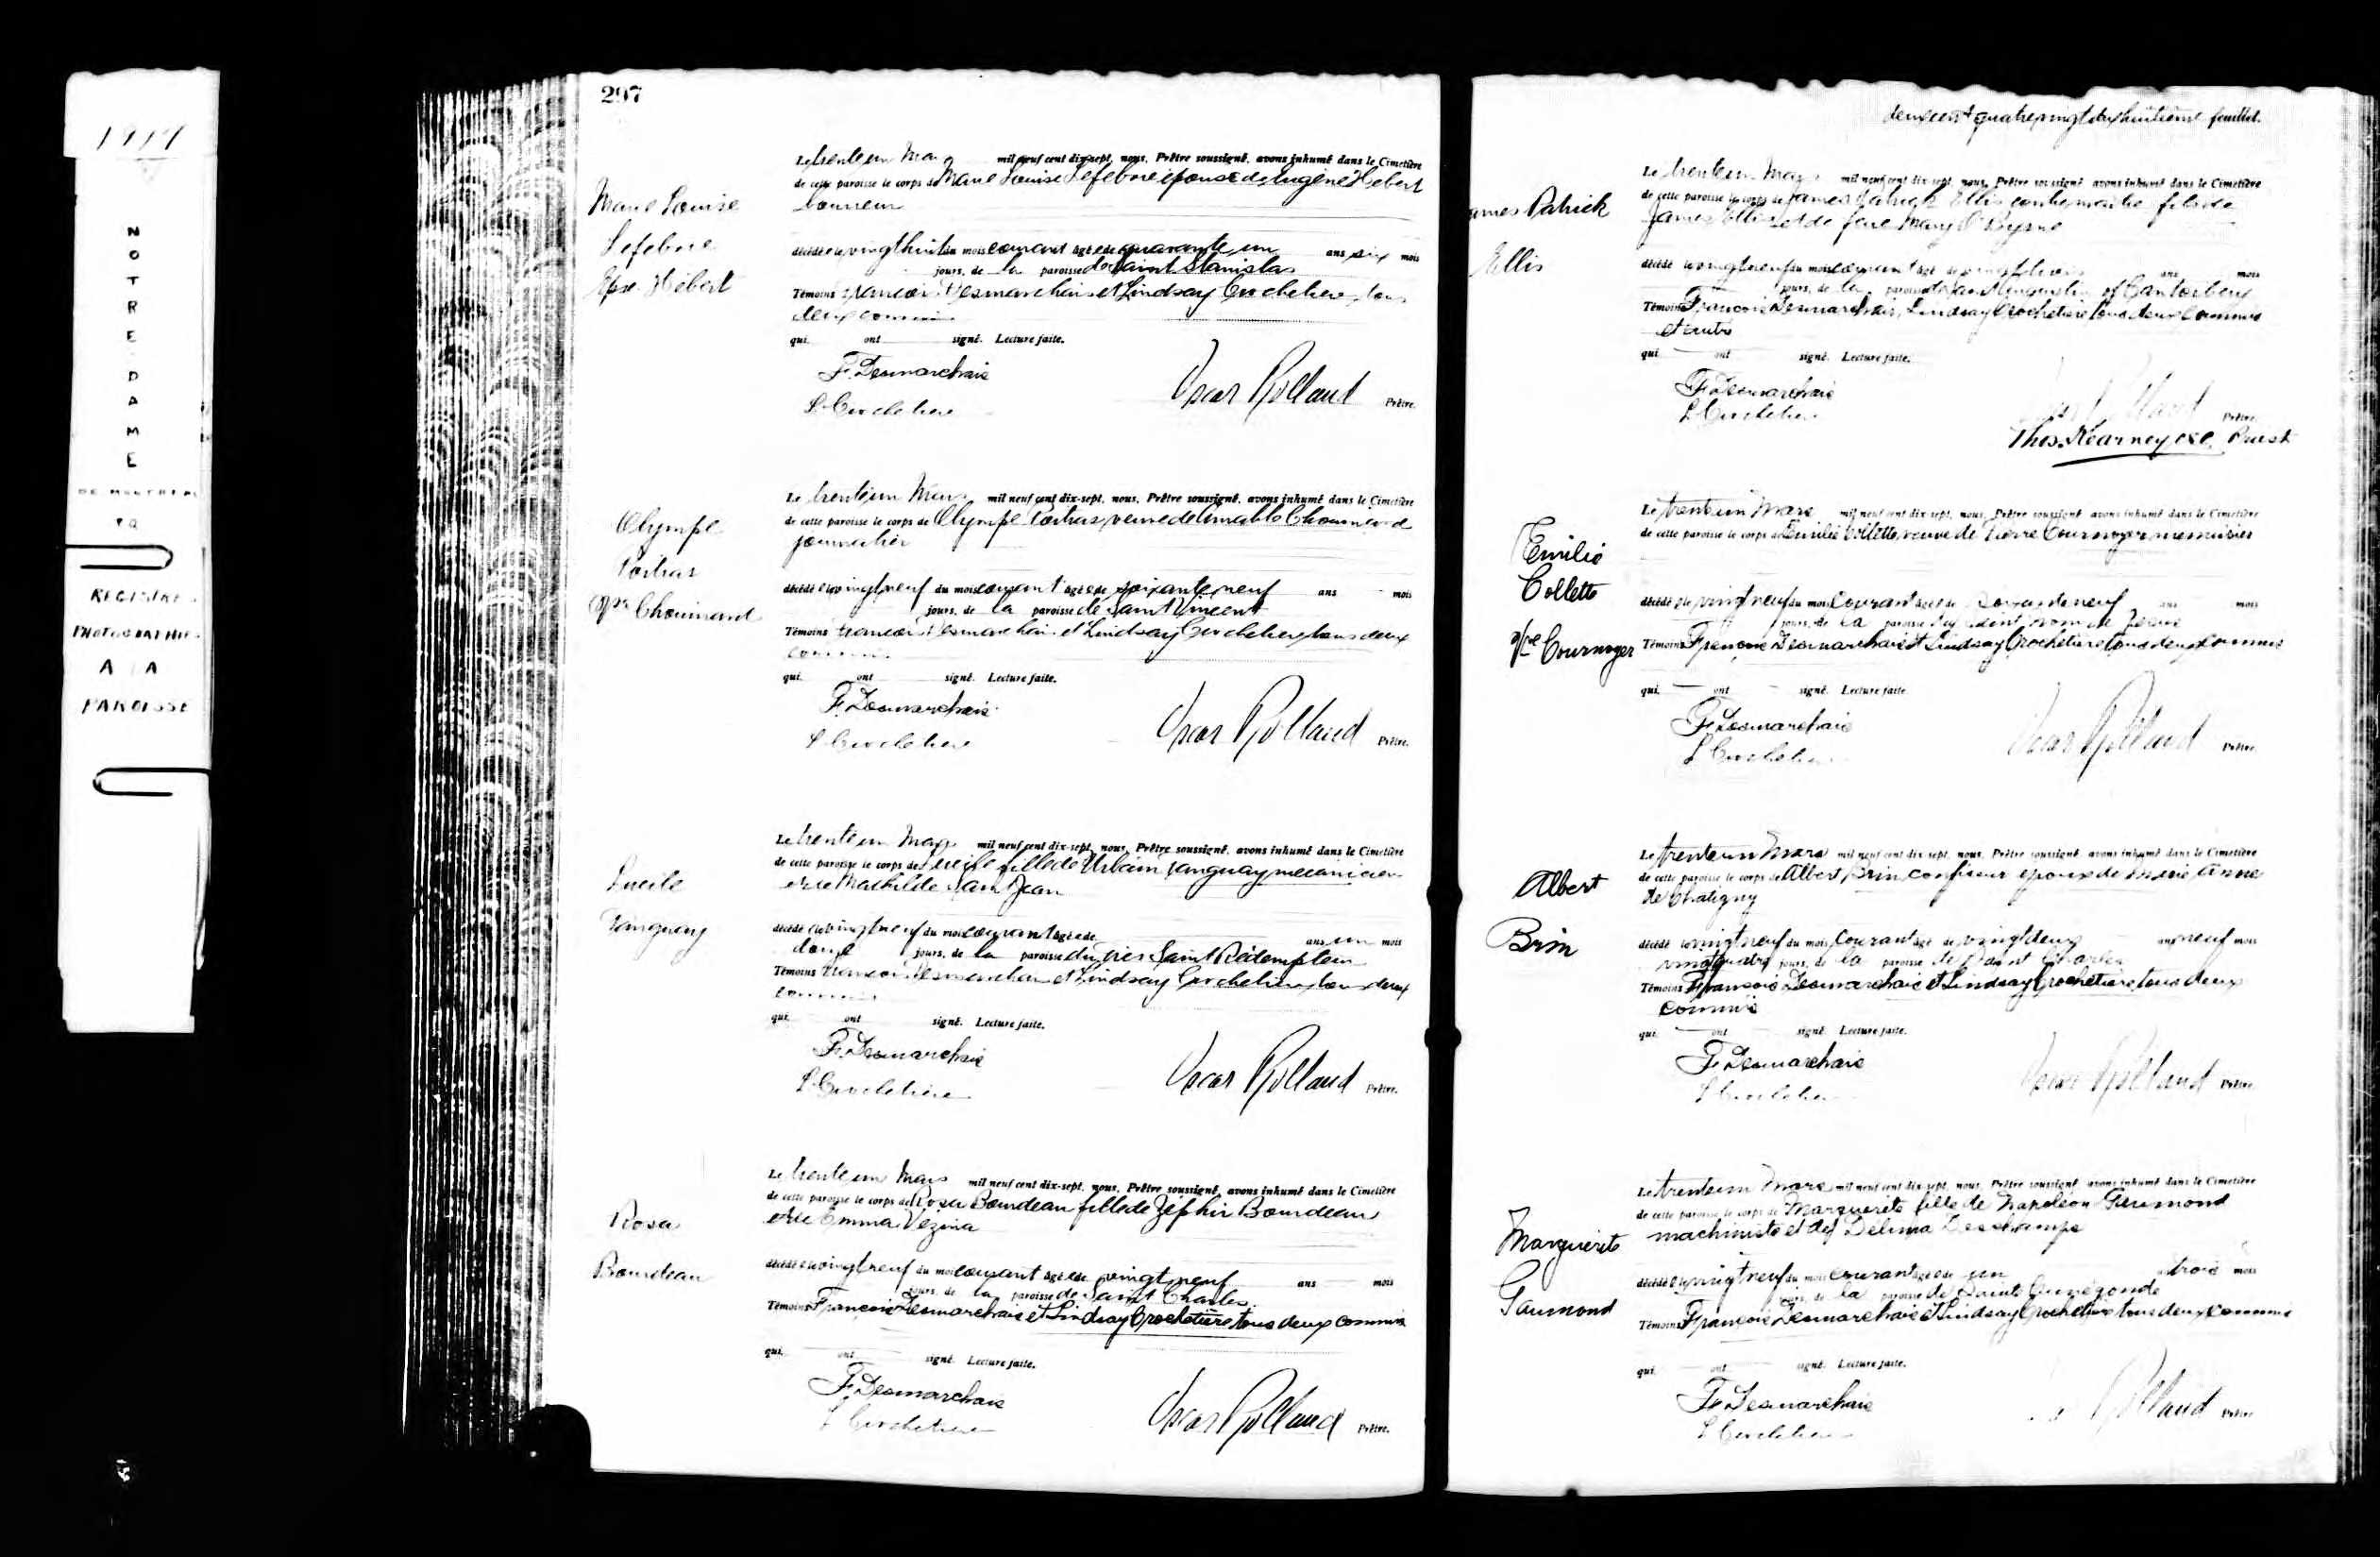 1917
NOTRE DAME
DE MONTREAL
REGISTRE
PHOTOGRAPHIE
A LA
PAROISSE
297
Le trente un Mars mil neuf cent dix-sept, nous, Prêtre soussigné, avons inhumé dans le Cimetière
de cette paroisse le corps de Marie Louise Lefebvre épouse de Eugène Hebert
Marie Louise
Lefebvre
Epse Hebert
décédée le vingt huit du mois courant âgée de quarante un ans six mois
jours, de la paroisse de Saint Stanislas
Témoins François Desmarchais et Lindsay Crochetière tous
deux commis
qui ont signé. Lecture faite.
F. Desmarchais
L Crochetière
Oscar Rolland Prêtre.
Le trente un Mars mil neuf cent dix-sept, nous, Prêtre soussigné, avons inhumé dans le Cimetière
de cette paroisse le corps de Olympe Poitras, veuve de Aimable Chouinard
journalier
Olympe
Poitras
Vve Chouinard
décédée le vingt neuf du mois courant âgée de soixante neuf ans mois
jours, de la paroisse de Saint Vincent
Témoins François Desmarchais et Lindsay Crochetière tous deux
commis
qui ont signé. Lecture faite.
F. Desmarchais
L Crochetière
Oscar Rolland Prêtre.
Le trente un Mars mil neuf cent dix-sept, nous, Prêtre soussigné, avons inhumé dans le Cimetière
de cette paroisse le corps de Lucile fille de Urbain Tanguay mecanicien
et de Mathilde Saint Jean
Lucile
Tanguay
décédée le vingt neuf du mois courant âgée de ans un mois
douze jours, de la paroisse du Très Saint Rédempteur
Témoins François Desmarchais et Lindsay Crochetière tous deux
commis
qui ont signé. Lecture faite.
F. Desmarchais
L Crochetière
Oscar Rolland Prêtre.
Le trente un Mars mil neuf cent dix-sept, nous, Prêtre soussigné, avons inhumé dans le Cimetière
de cette paroisse le corps de Rosa Bourdeau fille de Zéphir Bourdeau
et de Emma Vezina
Rosa
Bourdeau
décédée le vingt neuf du mois courant âgée de vingt neuf ans mois
jours, de la paroisse de Saint Charles
Témoins François Desmarchais et Lindsay Crochetière tous deux commis
qui ont signé. Lecture faite.
F. Desmarchais
L Crochetière
Oscar Rolland Prêtre.
deux cent quatre vingt dix huitième feuillet.
Le trente un Mars mil neuf cent dix-sept, nous, Prêtre soussigné avons inhumé dans le Cimetière
de cette paroisse le corps de James Patrick Ellis contremaitre fils de
James Ellis et de feue Mary O'Byrne
James Patrick
Ellis
décédé le vingt neuf du mois courant âgé de vingt trois ans mois
jours, de la paroisse de Saint Augustin of Cantorbery
Témoins François Desmarchais, Lindsay Crochetière tous deux commis
et autre
qui ont signé. Lecture faite.
F. Desmarchais
L Crochetière
Oscar Rolland Prêtre.
Thos. Kearney Priest
Le trente un Mars mil neuf cent dix-sept, nous, Prêtre soussigné avons inhumé dans le Cimetière
de cette paroisse le corps de Emilie Collette, veuve de Pierre Cournoyer menuisier
Emilie
Collette
Vve Cournoyer
décédée le vingt neuf du mois courant âgée de neuf ans mois
jours, de la paroisse du Saint Nom de Jésus
Témoins François Desmarchais et Lindsay Crochetière tous deux commis
qui ont signé. Lecture faite
F. Desmarchais
L Crochetière
Oscar Rolland Prêtre.
Le trente un Mars mil neuf cent dix-sept, nous, Prêtre soussigné, avons inhumé dans le Cimetière
de cette paroisse le corps de Albert Brin, confiseur époux de Marie Anne
de Chatigny
Albert
Brin
décédé le vingt neuf du mois courant âgé de vingt deux ans neuf mois
vingt quatre jours, de la paroisse de Saint Charles
Témoins François Desmarchais et Lindsay Crochetière tous deux
commis
qui ont signé. Lecture faite.
F. Desmarchais
L Crochetière
Oscar Rolland Prêtre.
Le trente un Mars mil neuf cent dix-sept, nous, Prêtre soussigné, avons inhumé dans le Cimetière
de cette paroisse le corps de Marguerite fille de Napoléon Gaumond
machiniste et de Délima Deschamps
Marguerite
Gaumond
décédée le vingt neuf du mois courant âgée de un an trois mois
jours, de la paroisse de Sainte Cunégonde
Témoins François Desmarchais et Lindsay Crochetière tous deux commis
qui ont signé. Lecture faite.
F. Desmarchais
L Crochetière
Rolland Prêtre